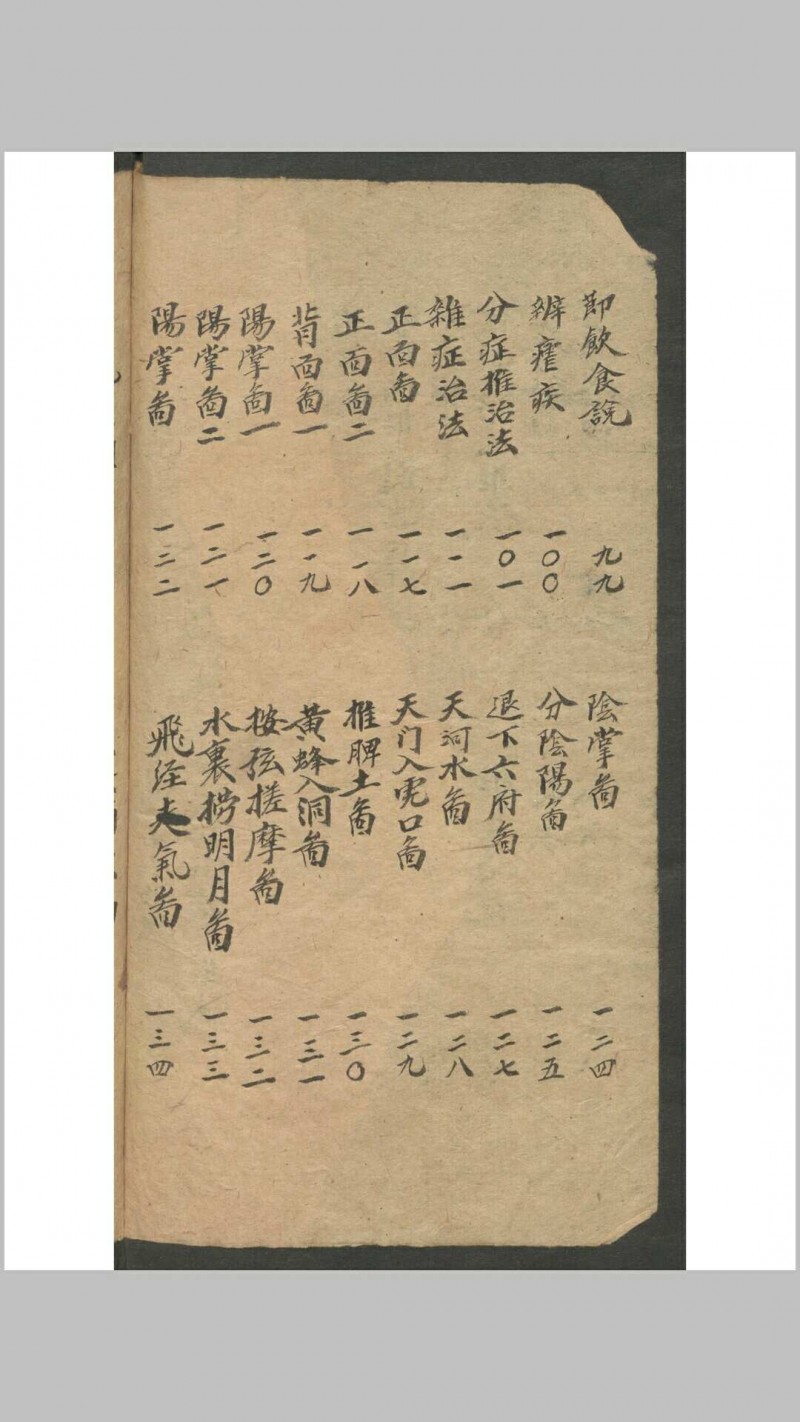 即飲食說 九九
辨瘧疾 一〇〇
分症推治法 一〇一
雜症治法 一一一
正面啚 一一七
正面啚二 一一八
背面啚一 一一九
陽掌啚一 一二〇
陽掌啚二 一二一
陽掌啚 一二二
陰掌啚 一二四
分陰陽啚 一二五
退下六府啚 一二七
天河水啚 一二八
天门入虎口啚 一二九
推脾土啚 一三〇
黃蜂入洞啚 一三一
按弦搓摩啚 一三二
水裏撈明月啚 一三三
飛经走氣啚 一三四